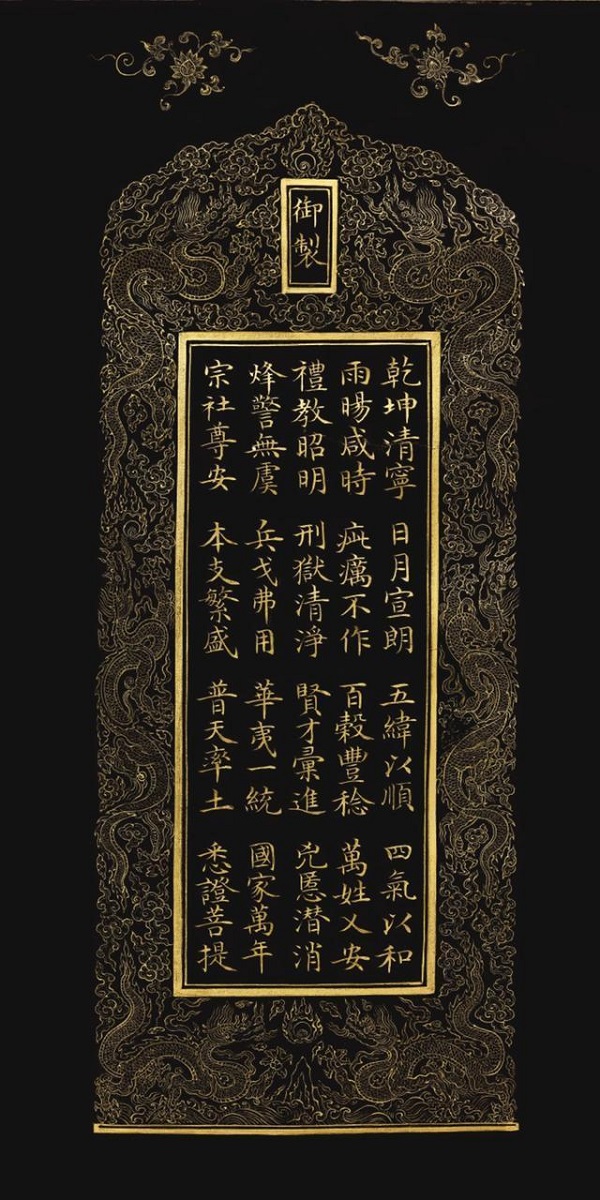 御製
乾坤清寧 日月宣朗 五緯以順 四氣以和
雨暘咸時 疵癘不作 百穀豐稔 萬姓乂安
禮教昭明 刑獄清淨 賢才彙進 兇慝潛消
烽警無虞 兵戈弗用 華夷一統 國家萬年
宗社尊安 本支繁盛 普天率土 悉證菩提